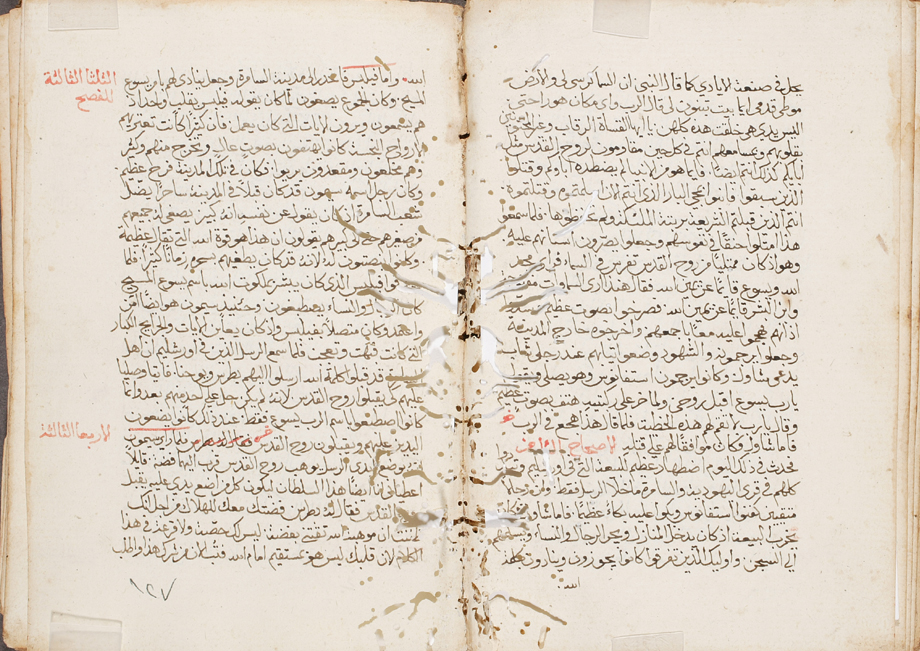 يحل في صنعة الايادي كما قال النبي ان السما كرسي لي والارض
موطي قدمي ايما بيت تبنون لي قال الرب واي مكان هو راحتي
اليس يدي هي خلقت هذه كلهن يا ايها القساة الرقاب وغير المختونين
بقلوبهم ومسامعهم انتم في كل حين مقاومون لروح القدس مثل
ابايكم كذلك انتم ايضا فايما هو من الانبيا لم يضطهده اباوكم وقتلوا
الذين سبقوا فانبوا بمجي البار الذي انتم الان اسلمتموه وقتلتموه
انتم الذين قبلتم الشريعة بترتيب الملايكة ولم تحفظوها فلما سمعوا
هذا امتلوا حنقا في نفوسهم وجعلوا يصرون اسنانهم عليه
وهو اذ كان ممتليا من روح القدس تفرس في السما فراي مجد
الله ويسوع قايما عن يمين الله فقال هنذا اري السماوات مفتحة
وابن البشر قايما عن يمين الله فصرخوا بصوت عظيم وسدوا
اذانهم وهجموا عليه معا باجمعهم واخرجوه خارج المدينة
وجعلوا يرجمونه والشهود وضعوا ثيابهم عند رجلي شاب
يدعي شاول وكانوا يرجمون استفانوس وهو يصلي ويقول
يارب يسوع اقبل روحي ولما خر علي ركبتيه هتف بصوت عظيم
وقال يارب لا تقم لهم هذه الخطية فلما قال هذا هجع في الرب
فاما شاول فكان موافقا لهم علي قتله الاصحاح الثامن
فحدث في ذلك اليوم اضطهاد عظيم للبيعة التي في اورشليم وتبددوا
كلهم في قري اليهودية والسامرة ما خلا الرسل فقط وان رجالا
متقيين كفنوا استفانوس وبكوا عليه بكاء عظيما فاما شاول فكان
يخرب البيعة اذ كان يدخل المنازل ويجر الرجال والنساء ويسلمهم
الي السجن واوليك الذين تفرقوا كانوا يجوزون وينادون بكلمة
الله
الثلثا الثالثة
للفصح
الله واما فيلبس فانحدر الي مدينة السامرة وجعل ينادي لهم بامر يسوع
المسيح وكان الجموع يصغون لما كان يقوله فيلبس بقلب واحد اذ
هم يسمعون ويرون الايات التي كان يعمل فان كثيرا كانت تعتريهم
الارواح النجسة كانوا يهتفون بصوت عال وتخرج منهم وكثير
وهم مخلعون ومقعدون بريوا فكان في تلك المدينة فرح عظيم
وكان رجل اسمه سيمون قد كان قبلا في المدينة ساحرا يضل
شعب السامرة اذ كان يقول عن نفسه انه كبير يصغي له جميعهم
من صغيرهم حتي كبيرهم يقولون ان هذا هو قوة الله التي تقال عظيمة
وكانوا ينصتون له لانه قد كان يطغيهم بسحره زمانا كثيرا فلما
صدقوا فيلبس الذي كان يبشر بملكوت الله باسم يسوع المسيح
كان الرجال والنساء يصطبغون وحينيذ سيمون هو ايضا امن
واعتمد وكان متصلا بفيلبس واذ كان يعاين الايات والجرايح الكبار
التي كانت فبهت وتعجب فلما سمع الرسل الذين في اورشليم ان اهل
السامرة قد قبلوا كلمة الله ارسلوا اليهم بطرس ويوحنا فاتيا وصليا
عليهم كي يقبلوا روح القدس لانه لم يكن حل علي احد منهم بعد وانما
كانوا اصطبغوا باسم الرب يسوع فقط عند ذلك كانوا يضعون
الاربعا الثالثة
اليدين عليهم ويقبلون روح القدس فلما راي سيمون
انه بوضع ايدي الرسل يوهب روح القدس قرب اليهما فضة قايلا
اعطياني انا ايضا هذا السلطان ليكون كل من اضع يدي عليه يقبل
روح القدس فقال له بطرس فضتك معك للهلاك من اجل انك
ظننت ان موهبة الله تقتني بفضة ليس لك حصة ولا قرعة في هذا
الكلام لان قلبك ليس هو بمستقيم امام الله فتب الان من شرك هذا واطلب
١٢٧